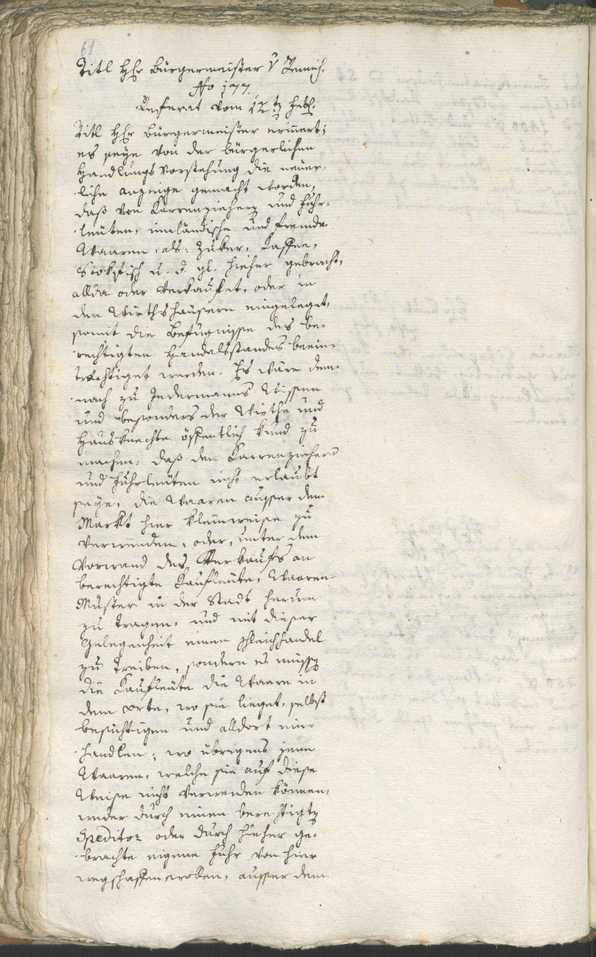 61
Titl Hr Bürgermeister v Zennich.
No 177.
Referat vom 12ten Hebl.
Titl Hr Bürgermeister erinnert;
es seÿe von der bürgerlichen
Handlungs Vorstehung die neuer-
liche anzeige gemacht worden,
daß von Karrenziehern und Fuhr-
leüten, inländische und fremde
Waaren, als: Zuker, Caffee,
Stokfisch u. d. gl. hieher gebracht,
allda oder verkaufet, oder in
den Wirthshäusern eingeleget,
somit die Befugnisse des be-
rechtigten Handelstandes beein-
trächtiget werden. Es wäre dem-
nach zu Jedermanns Wissen
und besonders der Wirthe und
Hausknechte öffentlich kund zu
machen, daß den Karrenziehern
und Fuhrleüten nicht erlaubt
seÿe, die Waaren ausser dem
Markt hier kleinweise zu
verwenden, oder, unter dem
Vorwand des Verkaufs an
berechtigte Kaufleüte, Waaren
Muster in der Stadt herum
zu tragen, und mit dieser
Gelegenheit einen Schleichhandel
zu treiben, sondern es müsse
die Kaufleüte die Waare in
dem Orte, wo sie lieget, selbst
besichtigen und alldort ein-
handlen; wo übrigens jene
Waaren, welche sie auf diese
Weise nicht verwenden können,
wider durch einen berechtigte
Speditor oder durch hieher ge-
brachte eigene Fuhr von hier
wegschaffen wollen, ausser dem